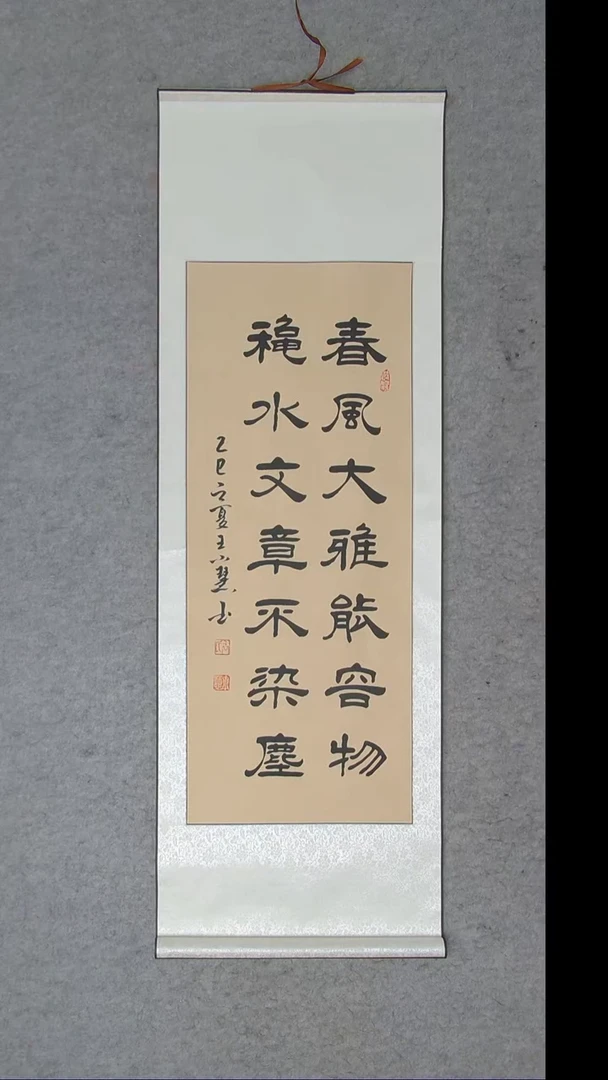 春風大雅能容物
穐水文章不染塵
乙巳之夏王小